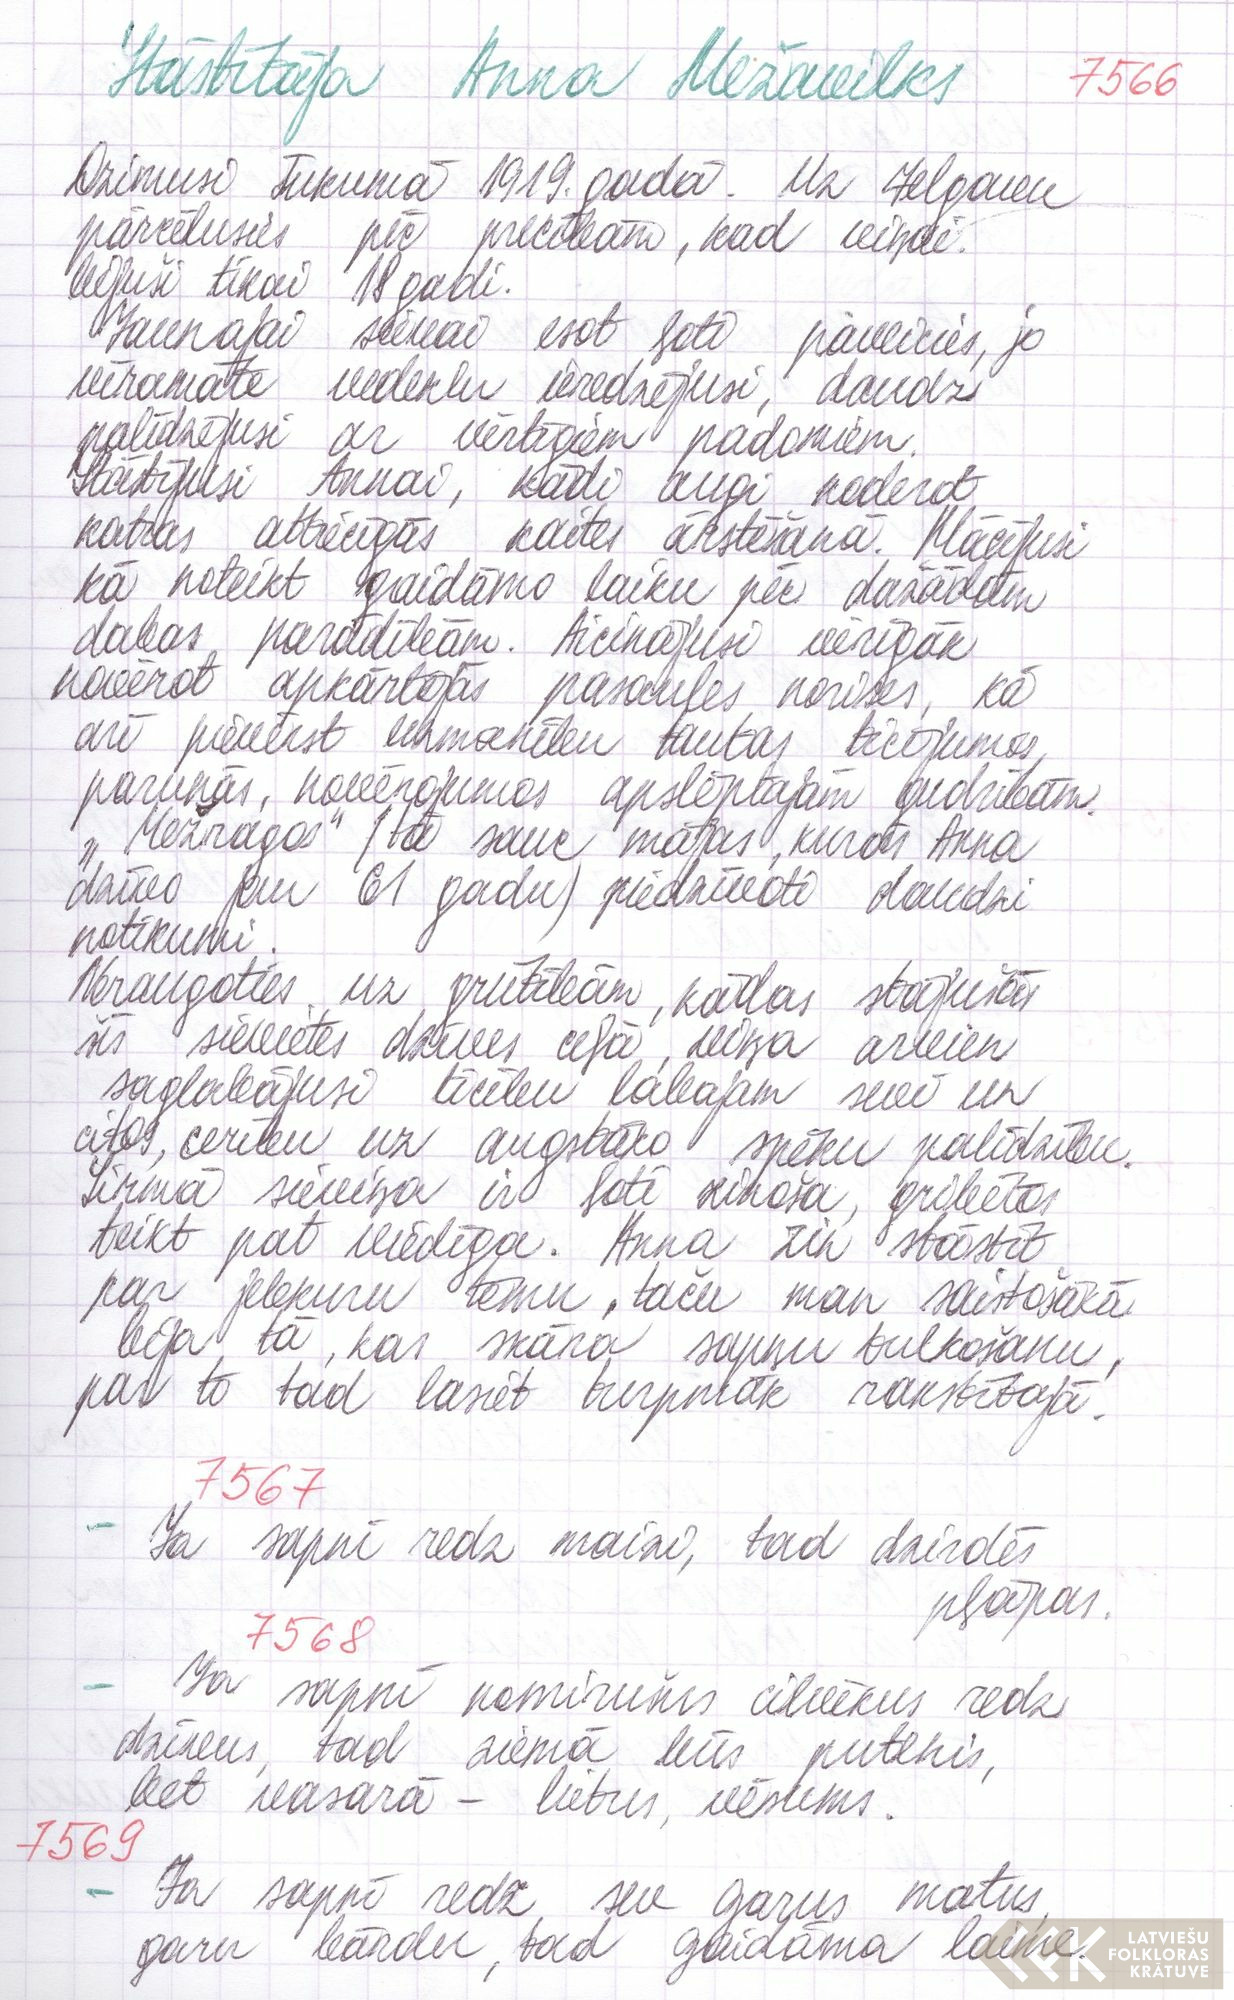 Stāstītāja Anna Mežavilks 7566
Dzimusi Tukumā 1919. gadā. Uz Jelgavu
pārcēlusies pēc precībām, kad viņai
bijuši tikai 18 gadi.
Jaunajai sievai esot ļoti paveicies, jo
vīramāte vedeklu ieredzējusi, daudz
palīdzējusi ar vērtīgiem padomiem.
Stāstījusi Annai, kādi augi noderot
katras attiecīgās kaites ārstēšanā. Mācījusi
kā noteikt gaidāmo laiku pēc dažādām
dabas parādībām. Aicinājusi vērīgāk
novērot apkārtējās pasaules norises, kā
arī pievērst uzmanību tautas ticējumos,
parunās, novērojumos apslēptajām gudrībām.
„Mežragos" (tā sauc mājas, kurās Anna
dzīvo jau 61 gadu) piedzīvoti daudzi
notikumi.
Neraugoties uz grūtībām, kādas stājušās
šīs sievietes dzīves ceļā, viņa arvien
saglabājusi ticību labajam sevī un
citos, cerību uz augstāko spēku palīdzību.
Sirmā sieviņa ir ļoti zinoša, gribētos
teikt pat viedīga. Anna zin stāstīt
par jebkuru tēmu, taču man saistošākā
bija tā, kas skāra sapņu tulkošanu,
par to tad lasiet turpmāk rakstītajā.
7567
- Ja sapnī redz maizi, tad dzirdēs
pļāpas.
7568
- Ja sapnī nomirušus cilvēkus redz
dzīvus, tad ziemā būs putenis,
bet vasarā – lietus, vēsums.
7569
- Ja sapnī redz sev garus matus,
garu bārdu, tad gaidāma laime.
LATVIEŠU
FOLKLORAS
KRĀTUVE